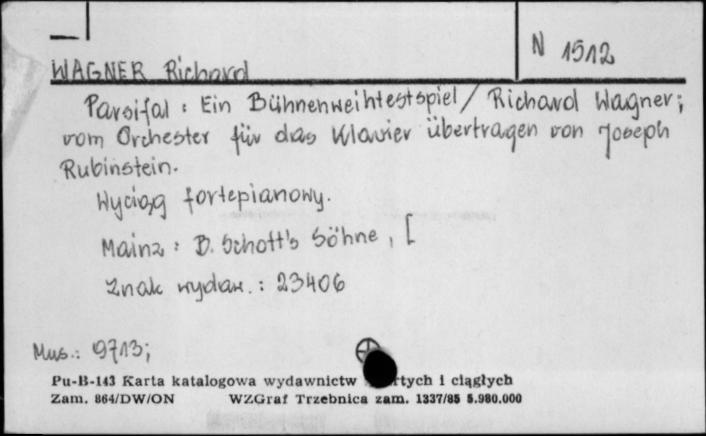 N 1512
WAGNER Richard
Parsifal : Ein Bühnenweihfestspiel / Richard Wagner ;
vom Orchester für das Klavier übertragen von Joseph
Rubinstein.
Wyciąg fortepianowy.
Mainz : B. Schott's Söhne , [
Znak wydaw. : 23406
Mus.: 9713;
Pu-B-143 Karta katalogowa wydawnictw rtych i ciągłych
Zam. 864/DW/ON WZGraf Trzebnica zam. 1337/85 5.980.000